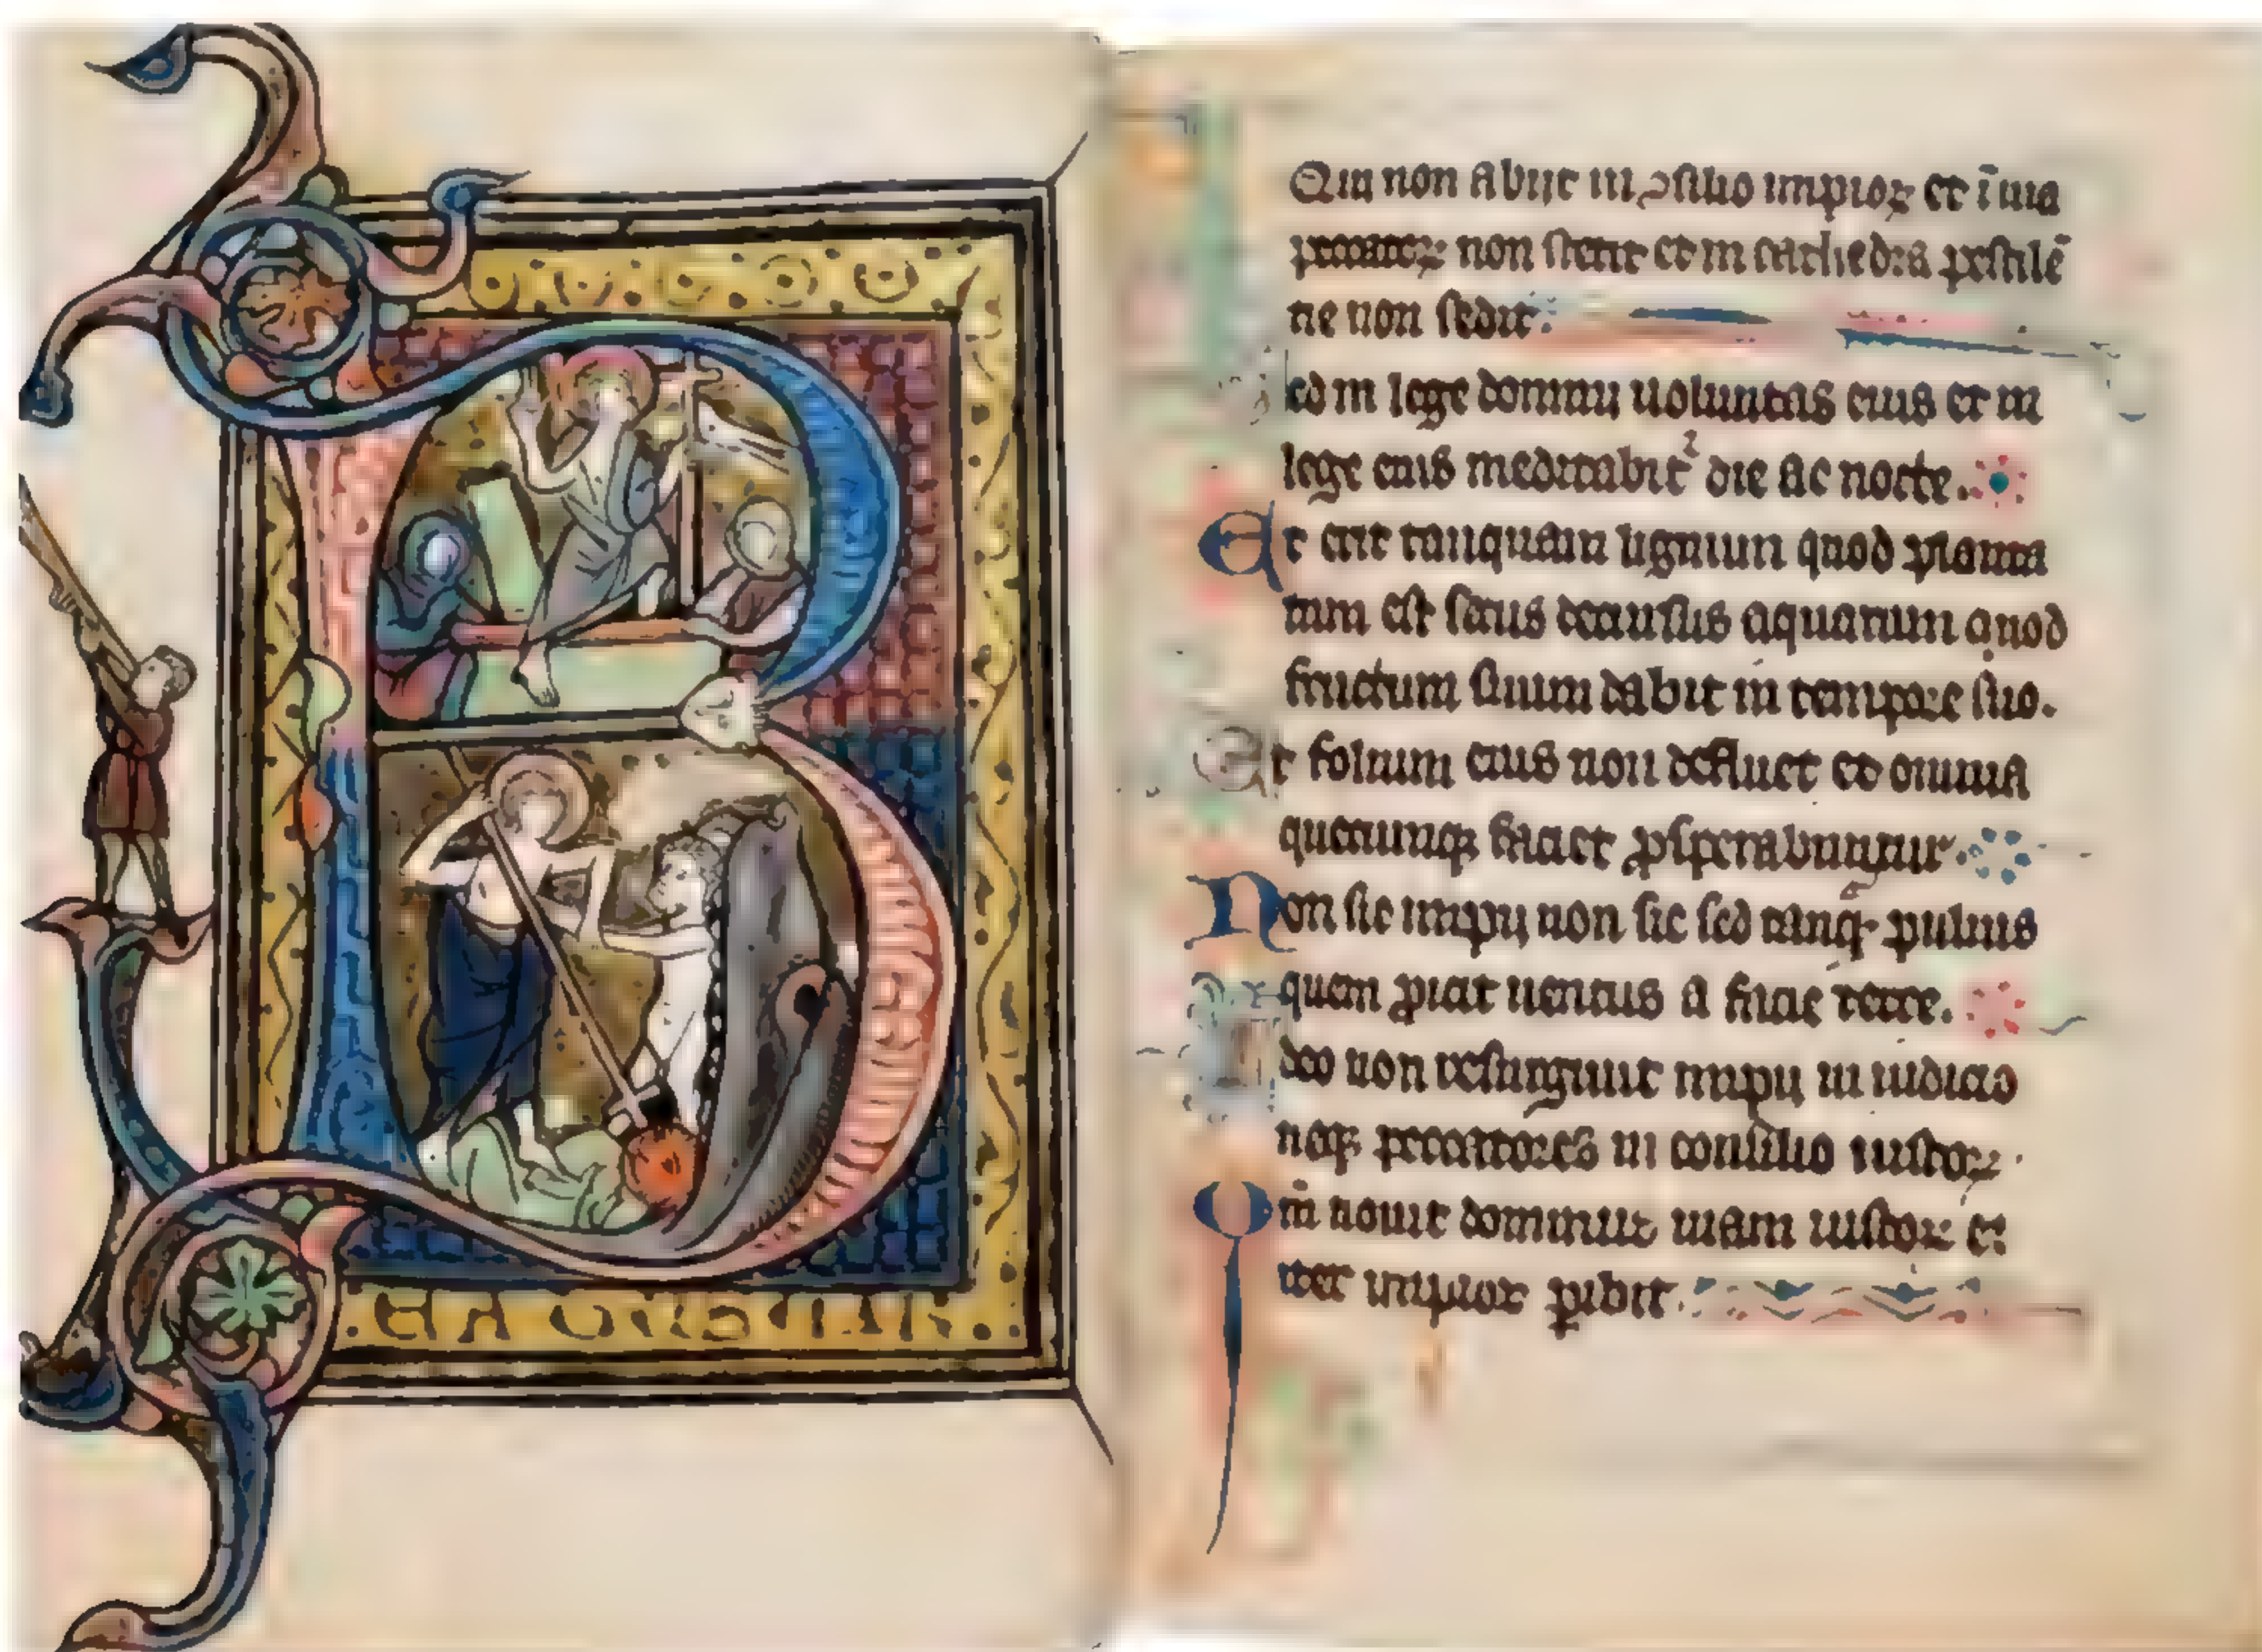 B
EATUS UIR
Qui non abiit in ɔsilio impioꝝ et ī uia
peccatoꝝ non stetit et in cathedra pestilē
tie non sedit.
ed in lege domini uoluntas eius et in
lege eius meditabit᷑ die ac nocte.
Et erit tanquam lignum quod planta
tum est secus decursus aquarum quod
fructum suum dabit in tempore suo.
Et folium eius non defluet et omnia
quecunqꝫ faciet ꝓsperabuntur.
Non sic impii non sic sed tanqᷓ puluis
quem ꝓicit uentus a facie terre.
Ideo non resurgunt impii in iudicio
neqꝫ peccatores in consilio iustoꝝ
Qm̄ nouit dominus uiam iustoꝝ et
iter impioꝝ ꝑibit.